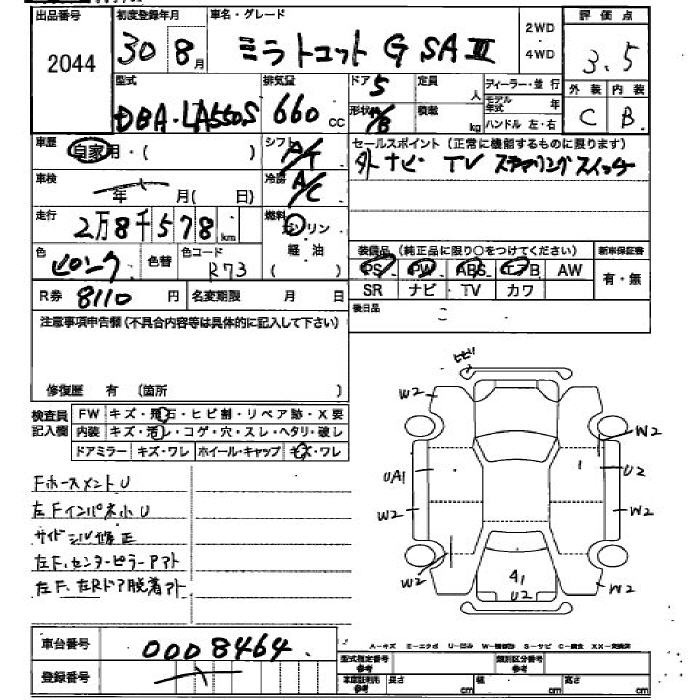 出品番号 初度登録年月 車名・グレード 2WD 評価点
2044 30 8月 ミラトコット G SAⅢ ・4WD 3.5
型式 排気量 ドア 5 定員 人 ディーラー・並行 外装 内装
DBA-LA550S 660cc 形状 /B 積載 kg モデル年式 年 C B
ハンドル 左・右
車歴 自家用・( ) シフト A/T セールスポイント(正常に機能するものに限ります)
外ナビ TV ステアリングスイッチ
車検 年 月( 日) 冷房 A/C
走行 2万8千578km 燃料 ガソリン・軽油
色 ピンク 色替 色コード R73 装備品(純正品に限り○をつけてください) 新車保証書
PS PW ABS エアB AW 有・無
R券 8110円 名変期限 月 日 SR ナビ TV カワ
注意事項申告欄(不具合内容等は具体的に記入して下さい) 後日品
修復歴 有 (箇所 )
検査員記入欄 FW キズ・飛石・ヒビ割・リペア跡・X要
内装 キズ・汚レ・コゲ・穴・スレ・ヘタリ・破レ
ドアミラー キズ・ワレ ホイール・キャップ キズ・ワレ
ヒビ
W2
W2
UA1
1
U2
W2
W2
W2
W2
41
U2
Fホースメント U
左Fインパネ小U
サイドシル修正
左F.センターピラーアアト
左F、左Rドア脱着アト
車台番号 0008464
登録番号
A-キズ E-エクボ U-凹み W-補修跡 S-サビ C-腐食 XX-交換済
型式指定番号 参考 類別区分番号 参考
車庫証明用 参考 長さ cm 幅 cm 高さ cm